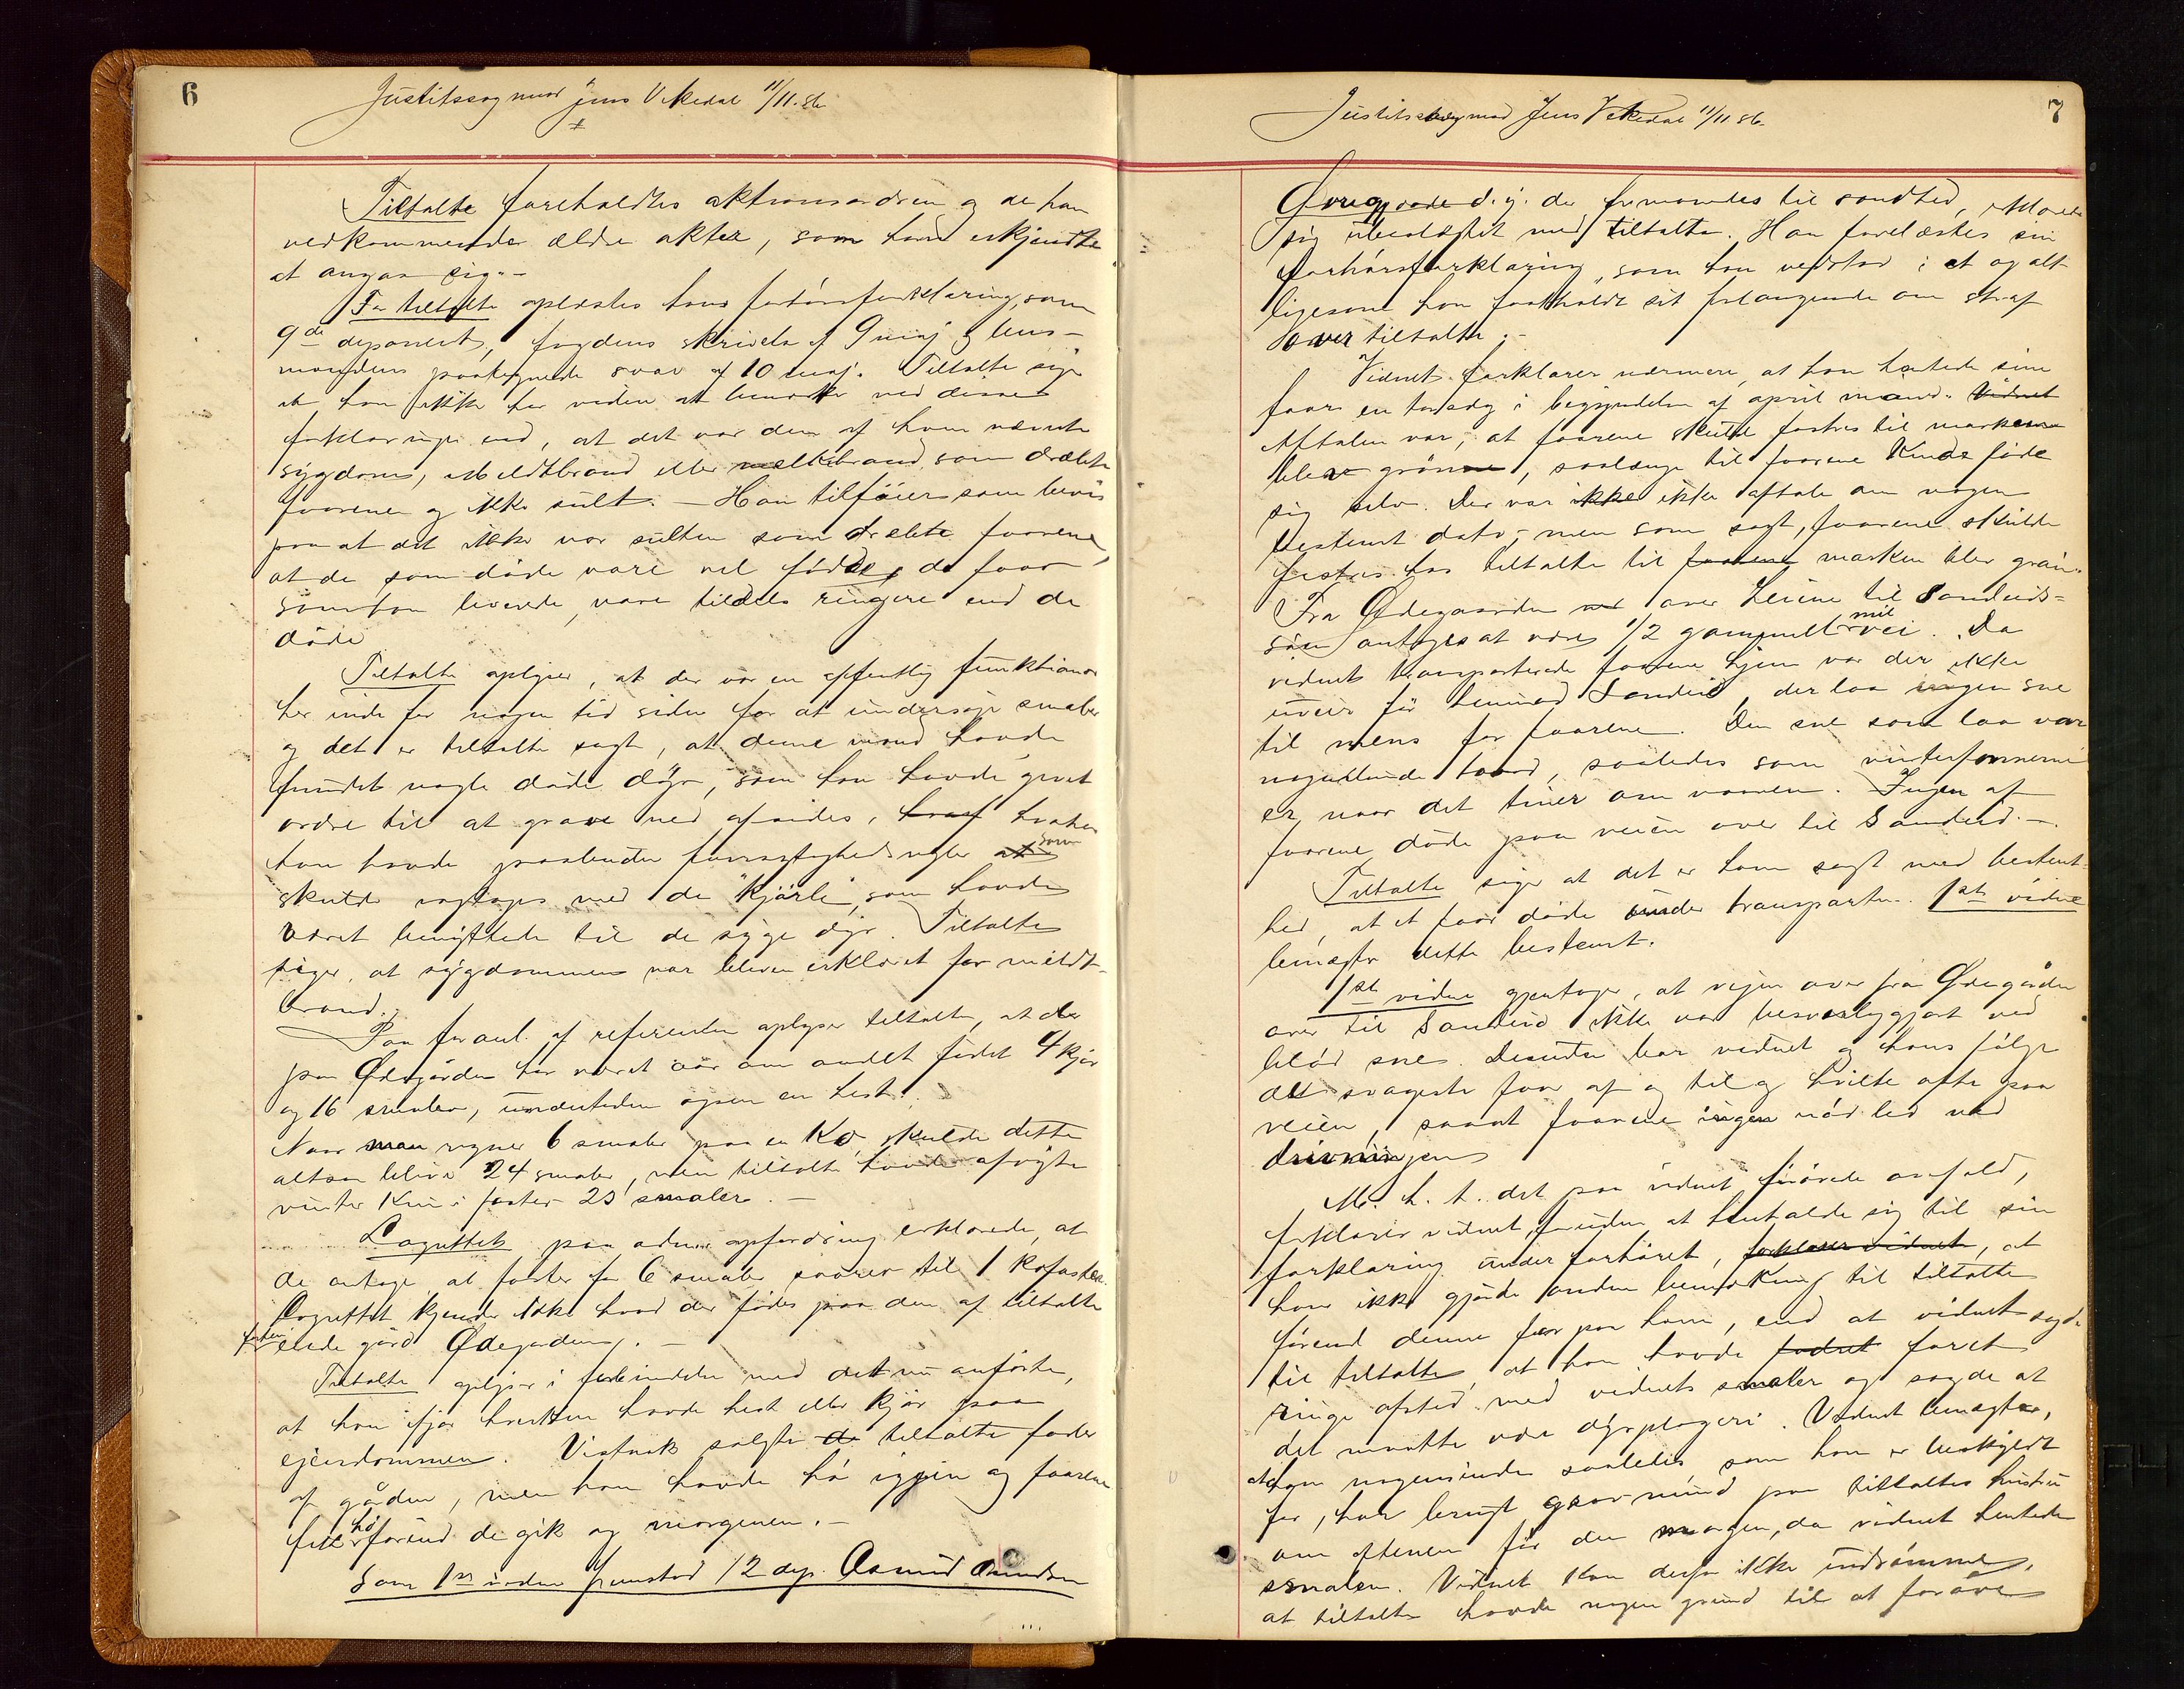 6
Justitssag mod Jens Vikedal 11/11.86
Tiltalte foreholdtes aktionsordren og de ham
vedkommende ældre akter, som han erkjendte
at angaa sig.-
For tiltalte oplæstes hans forhørsforklaring, som
9de deponent, fogdens skrivelse af 9 maj & lens-
mandens paategnede svar af 10 maj. Tiltalte siger
at han ikke har videre at bemærke ved disse
forklaringer end, at det var den af ham nævnte
sygdom, Mildtbrand eller miltbrand, som dræbte
faarene og ikke sult. - Han tilføier som bevis
paa at det ikke var sulten som dræbte faarene,
at de som døde vare vel fødde, de faar
som han levende vare tildels ringere end de
døde
Tiltalte oplyser, at der var en offentlig funktionær
her inde for nogen tid siden for at undersøge smaler
og det er tiltalte sagt, at denne mand havde
fundet nogle døde dyr, som han havde givet
ordre til at grave ned afsides, hvorhos
han havde paabudt forsigtighedsregler som
skulde iagttages med de "kjørler", som havde
været benyttede til de syge dyr. Tiltalte
siger, at sygdommen var bleven erklæret for mildt-
brand.
Paa foranl. af referenten oplyser tiltalte, at der
paa Ødegården har været aar om andet fødet 4 kjør
og 16 smaler, undertiden ogsaa en hest.
Naar man regner 6 smaler paa en ko, skulde dette
altsaa blive 24 smaler, men tiltalte havde afvigte
vinter kun i foster 23 smaler. -
Lagrettet paa adm. opfordring erklærede, at
de antage at foster for 6 smaler svarer til 1 kofoster.
Lagrettet kjender ikke hvad der fødes paa den af tiltalte
eiede gård Ødegården. -
Tiltalte oplyser i forbindelse med det nu anførte,
at han ifjor hverken havde hest eller kjør paa
ejendommen. Vistnok solgte tiltalte foder
af gården, men han havde hø igjen og faarene
fik hø førend de gik og morgenen. -
Som 1ste vidne fremstod 12 dep. Asmund Asmundsen

7
Justitssag mod Jens Vikedal 11/11 86
Øvregaard d.y. der formantes til sandhed, erklærede
sig ubeslægtet med tiltalte. Han forelæstes sin
forhørsforklaring, som han vedstod i et og alt
ligesom han fastholdt sit forlangende om straf
over tiltalte. -
Vidnet forklarer nærmere, at han hentede sine
faar en torsdag i begyndelsen af april maaned. Vidnet
Aftalen var, at faarene skulde fostres til marken
blev grøn, saalænge til faarene kunde føde
sig selv. Der var ikke ikke aftale om nogen
bestemt dato, men som sagt, faarene skulde
fostres hos tiltalte til faarene marken blev grøn.
Fra Ødegaarden over Heiene til Sandeids-
søen antages at være 1/2 gammel mil vei. Da
vidnet transporterede faarene hjem var der ikke
uveir før henimod Sandeid, der laa ingen sne
til mens for faarene. Den sne som laa var
nogenlunde haard, saaledes som vinterfonnerne
er, naar det tiner om vaaren. Ingen af
faarene døde paa veien over til Sandeid. -
Tiltalte siger at det er ham sagt med bestemt-
hed, at et faar døde under transporten. 1ste vidne
benægter dette bestemt.
1ste vidne gjentager, at vejen over fra Ødegården
over til Sandeid ikke var besværliggjort ved
blød sne. Desuden bar vidnet og hans følge
det svageste faar af og til og hvilte ofte paa
veien, saaat faarene ingen nød led ved
drivningen
M. h. t. det paa vidnet øvede anfald,
forklarer vidnet, foruden at henholde sig til sin
forklaring under forhøret, forklarer vidnet, at
han ikke gjorde anden bemærkning til tiltalte
førend denne før paa ham, end at vidnet sagde
til tiltalte, at han havde fodret faret
ringe afsted med vidnets smaler og sagde at
det maatte være dyrplageri. Vidnet benægter,
at han nogensinde saaledes som han er beskyldt
for, har brugt grov mund paa tiltaltes hustru
om aftenen før den morgen, da vidnet hentede
smalen. Vidnet kan derfor ikke indrømme,
at tiltalte havde nogen grund til at forøve